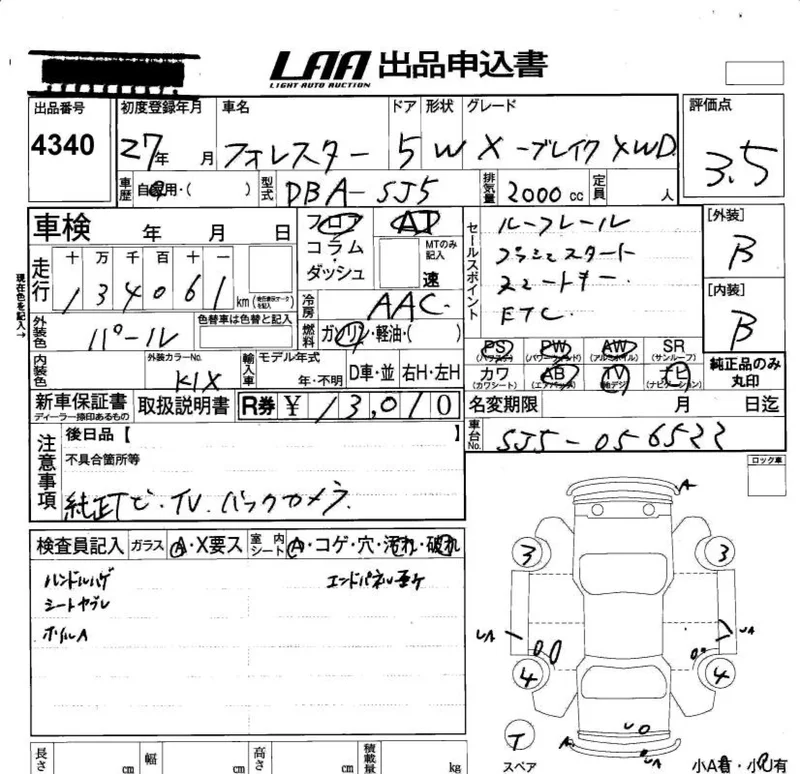 LAA 出品申込書
LIGHT AUTO AUCTION
出品番号 初度登録年月 車名 ドア 形状 グレード 評価点
4340 27年 月 フォレスター 5 W X-ブレイク XWD 3.5
車歴 自家用・( ) 型式 DBA-SJ5 排気量 2000cc 定員 人
車検 年 月 日
フロア コラム・ダッシュ AT MTのみ記入 速
セールスポイント
ルーフレール
プッシュスタート
スマートキー
ETC
[外装] B
[内装] B
現在色を記入→
走行 十 万 千 百 十 一
134061 km (走行表示データを記入)
冷房 AAC
燃料 ガソリン・軽油・( )
外装色 パール 色替車は色替と記入
PS (パワステ) PW (パワーウィンド) AW (アルミホイル) SR (サンルーフ)
カワ (カワシート) AB (エアバッグ) TV (地デジ) ナビ (ナビゲーション)
純正品のみ丸印
内装色 外装カラーNo. K1X 輸入車 モデル年式 年・不明 D車・並 右H・左H
新車保証書 ディーラー捺印あるもの 取扱説明書 R券 ¥ 13,010
名変期限 月 日迄
車台No. SJ5-056522
注意事項 後日品【 】
不具合箇所等
純正ナビ・TV. バックカメラ.
ロック車
検査員記入 ガラス A・X要ス 室内シート A・コゲ・穴・汚れ・破れ
ハンドルハゲ エンドパネル歪ケ
シートヤブレ
ホイルA
A
3 3
UA UA
4 4
T
スペア
A
UA
小A有・小凹有
長さ cm 幅 cm 高さ cm 積載量 kg